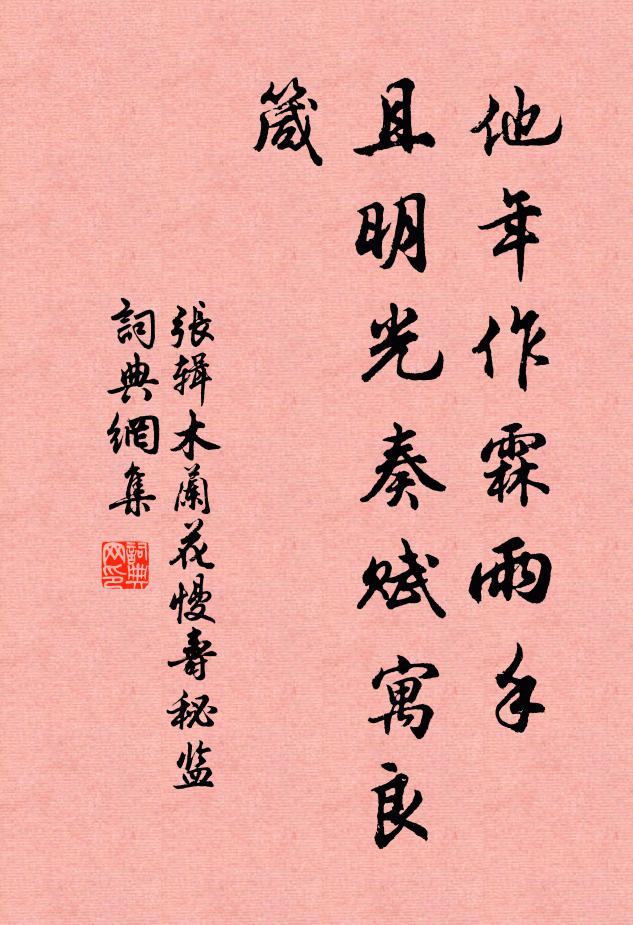 他年作霖雨手
且明光奏赋寓良
箴
張辑木蘭花慢壽秘监
詞典網集
詞典網印